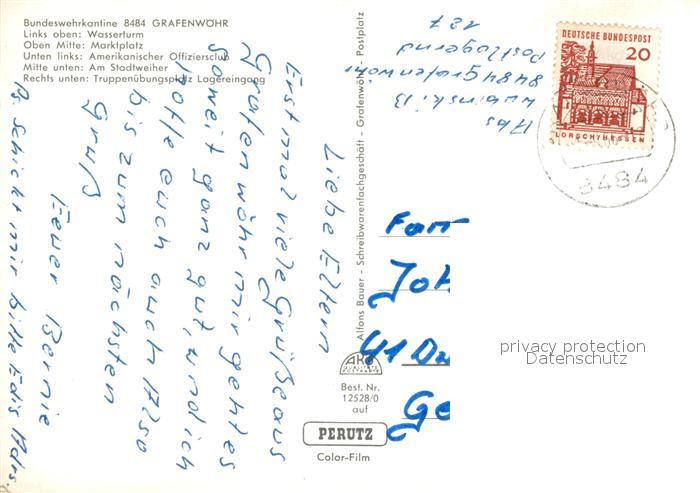 Bundeswehrkantine 8484 GRAFENWÖHR
Links oben: Wasserturm
Oben Mitte: Marktplatz
Unten links: Amerikanischer Offiziersclub
Mitte unten: Am Stadtweiher
Rechts unten: Truppenübungsplatz Lagereingang
Liebe Eltern
Erstmal viele Grüße aus
Grafenwöhr mir geht es
soweit ganz gut, und ich
hoffe euch auch Also
bis zum nächsten
Gruß
Eeuer Bernie
Ps Schickt mir bitte Edis Adrs.
Alfons Bauer - Schreibwarenfachgeschäft - Grafenwöhr - Postplatz
AKO
QUALITÄTS
POSTKARTE
Best. Nr.
12528/0
auf
PERUTZ
Color-Film
Abs
B
8484 Grafenwöhr
Postlagernd
127
DEUTSCHE BUNDESPOST
20
LORSCH/HESSEN
8484
Fam
Joh
41 Du
Ge
privacy protection
Datenschutz